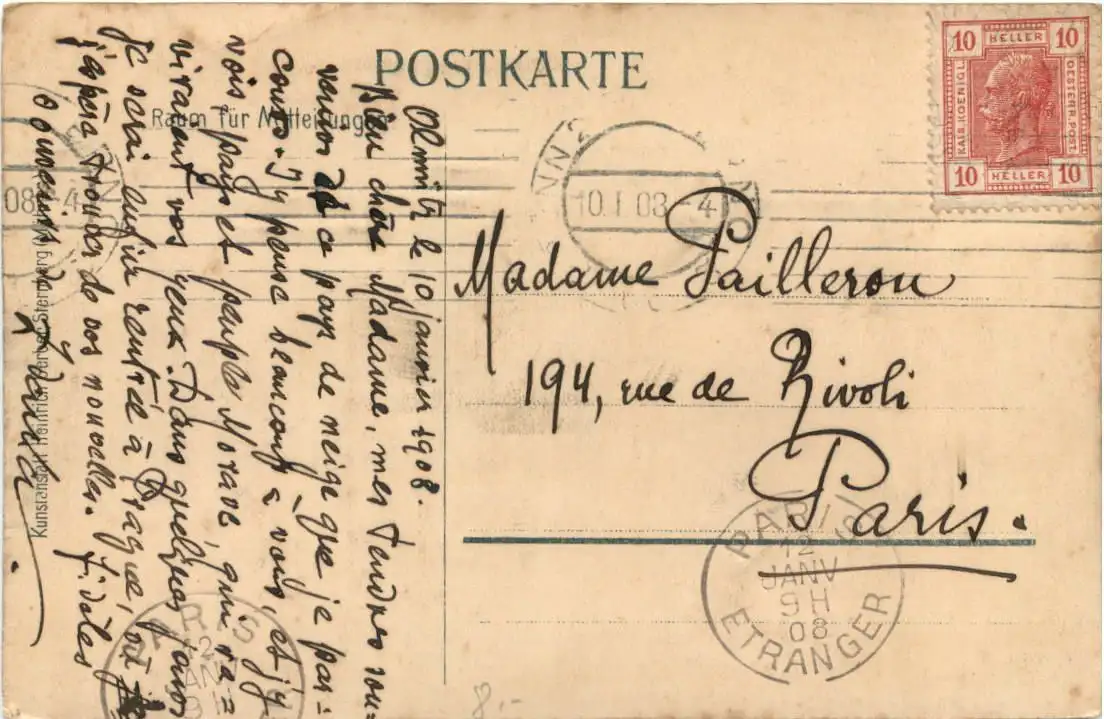 POSTKARTE
Raum für Mitteilungen
10 HELLER 10
KAIS. KOENIGL.
OESTERR. POST
10 HELLER 10
10.I 08 - 4
08 - 4
Olmütz le 10 janvier 1908.
Bien chère Madame, mes tendres sou=
venirs de ce pays de neige que je par=
cours. J'y pense beaucoup à vous, et j'y
vois pays et peuple Morave, qui ra=
viraient vos yeux. Dans quelques jours
je serai enfin rentré à Prague, où
j'espère trouver de vos nouvelles. Fidèles
Madame Pailleron
194, rue de Rivoli
Paris.
PARIS
12
JANV
9H
08
ETRANGER
PARIS
12
JANV
9H
Kunstanstalt Heinrich Sternberg
8.-